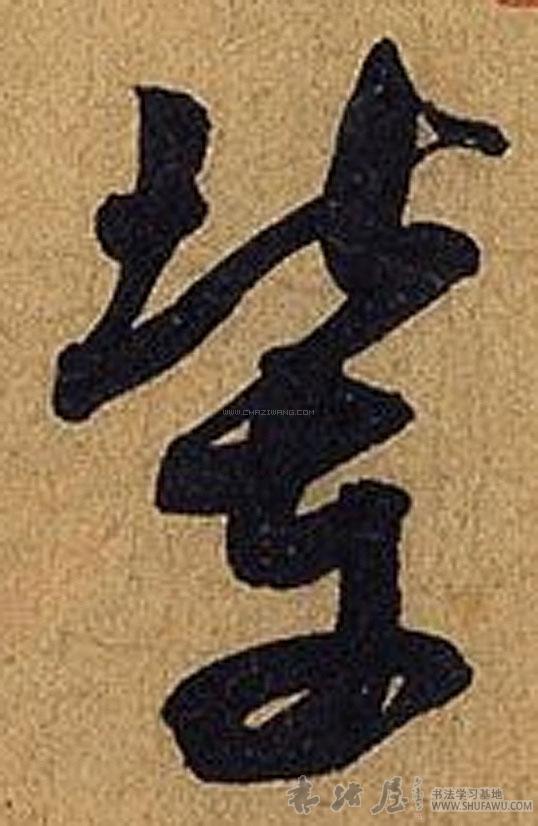 紫
WWW.CHAZIWANG.COM
书法屋
书法学习基地
WWW.SHUFAWU.COM